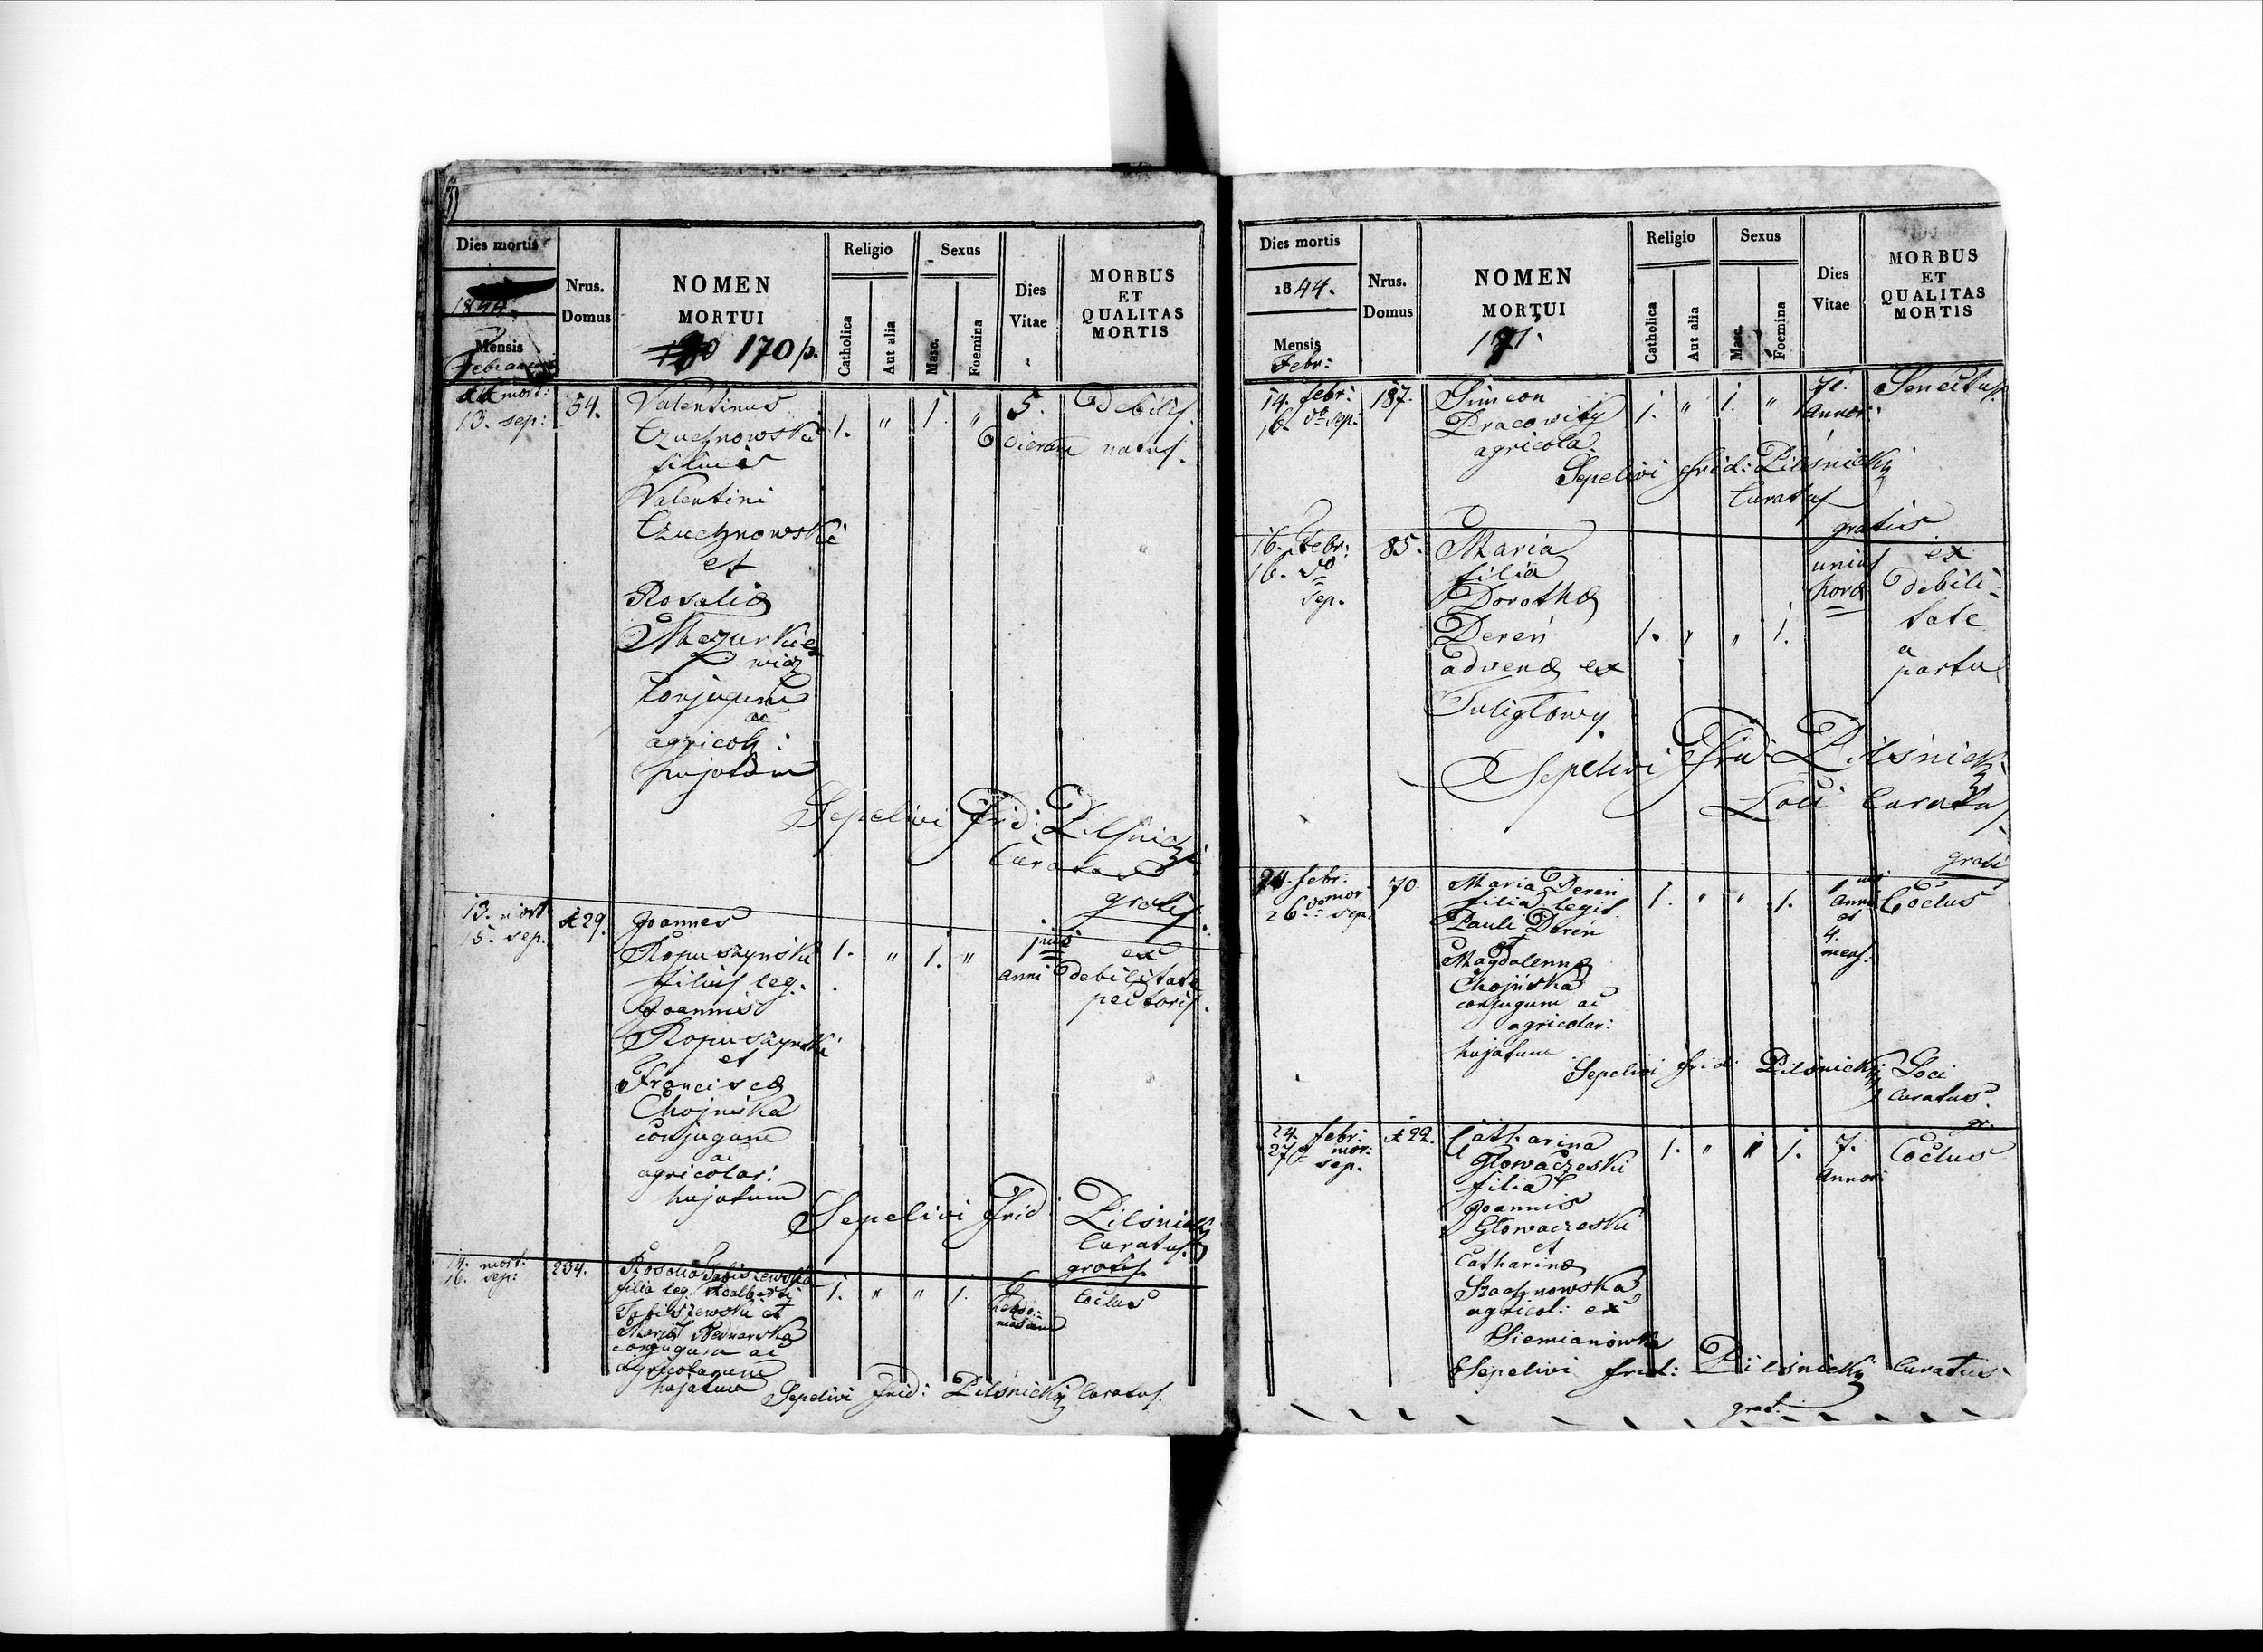 Dies mortis
1844.
Mensis
Februarius
Nrus.
Domus
NOMEN
MORTUI
170/p.
Religio
Catholica
Aut alia
Sexus
Masc.
Foemina
Dies
Vitae
MORBUS
ET
QUALITAS
MORTIS
mort:
13. sep:
54.
Valentinus
Czuchnowski
filius
Valentini
Czuchnowski
et
Rosaliæ
Mazurkie
wicz
Conjugum
ac
agricol:
hujatum
1. " 1. "
5.
dierum
Debilis
natus.
Sepelivi Frid: Pilsnicki
Curatus
gratis.
13. mort
15. sep.
129.
Joannes
Kopuszynski
filius leg.
Joannis
Kopuszynski
et
Franciscæ
Chojnska
Conjugum
ac
agricolar:
hujatum
1. " 1. "
1nius
anni
ex
debilitate
pectoris.
Sepelivi Frid: Pilsnicki
Curatus
gratis.
14. mort.
16. sep:
234.
Rosalia Tabiszewska
filia leg. Adalberti
Tabiszewski et
Mariæ Bednarska
conjugum ac
agricolarum
hujatum
1. " " 1.
hebdo:
madum
Coclus
Sepelivi Frid: Pilśnicky Curatus.
Dies mortis
1844.
Mensis
Febr:
Nrus.
Domus
NOMEN
MORTUI
171.
Religio
Catholica
Aut alia
Sexus
Masc.
Foemina
Dies
Vitae
MORBUS
ET
QUALITAS
MORTIS
14. febr:
16. do sep:
187.
Simeon
Pracowity
agricola.
1. " 1. "
71.
annor:
Senectus
Sepelivi frid: Pilsnicky
Curatus
gratis
16. Febr:
16. do
sep.
85.
Maria
filia
Dorothæ
Dereń
advenæ ex
Tuligłowy.
1. " " 1.
unius
horæ
ex
debili-
tate
a
partu
Sepelivi Frid: Pilśnicki
Loci Curatus
gratis
24. febr:
mor.
26. do sep.
70.
Maria Dereń
filia legit.
Pauli Dereń
et
Magdalenæ
Chojńska
conjugum ac
agricolar:
hujatum
1. " " 1.
1 nius
Anni
et
4.
mens.
Coclus
Sepelivi frid: Pilsnicky Loci
Curatus
gr.
24. febr:
mor:
27. sep.
122.
Catharina
Głowaczeski
filia
Joannis
Głowaczeski
et
Catharinæ
Szachnowska
agricol: ex
Siemianówka
1. " " 1.
7.
Annor:
Coclus
Sepelivi frid: Pilśnicky Curatus
grat.